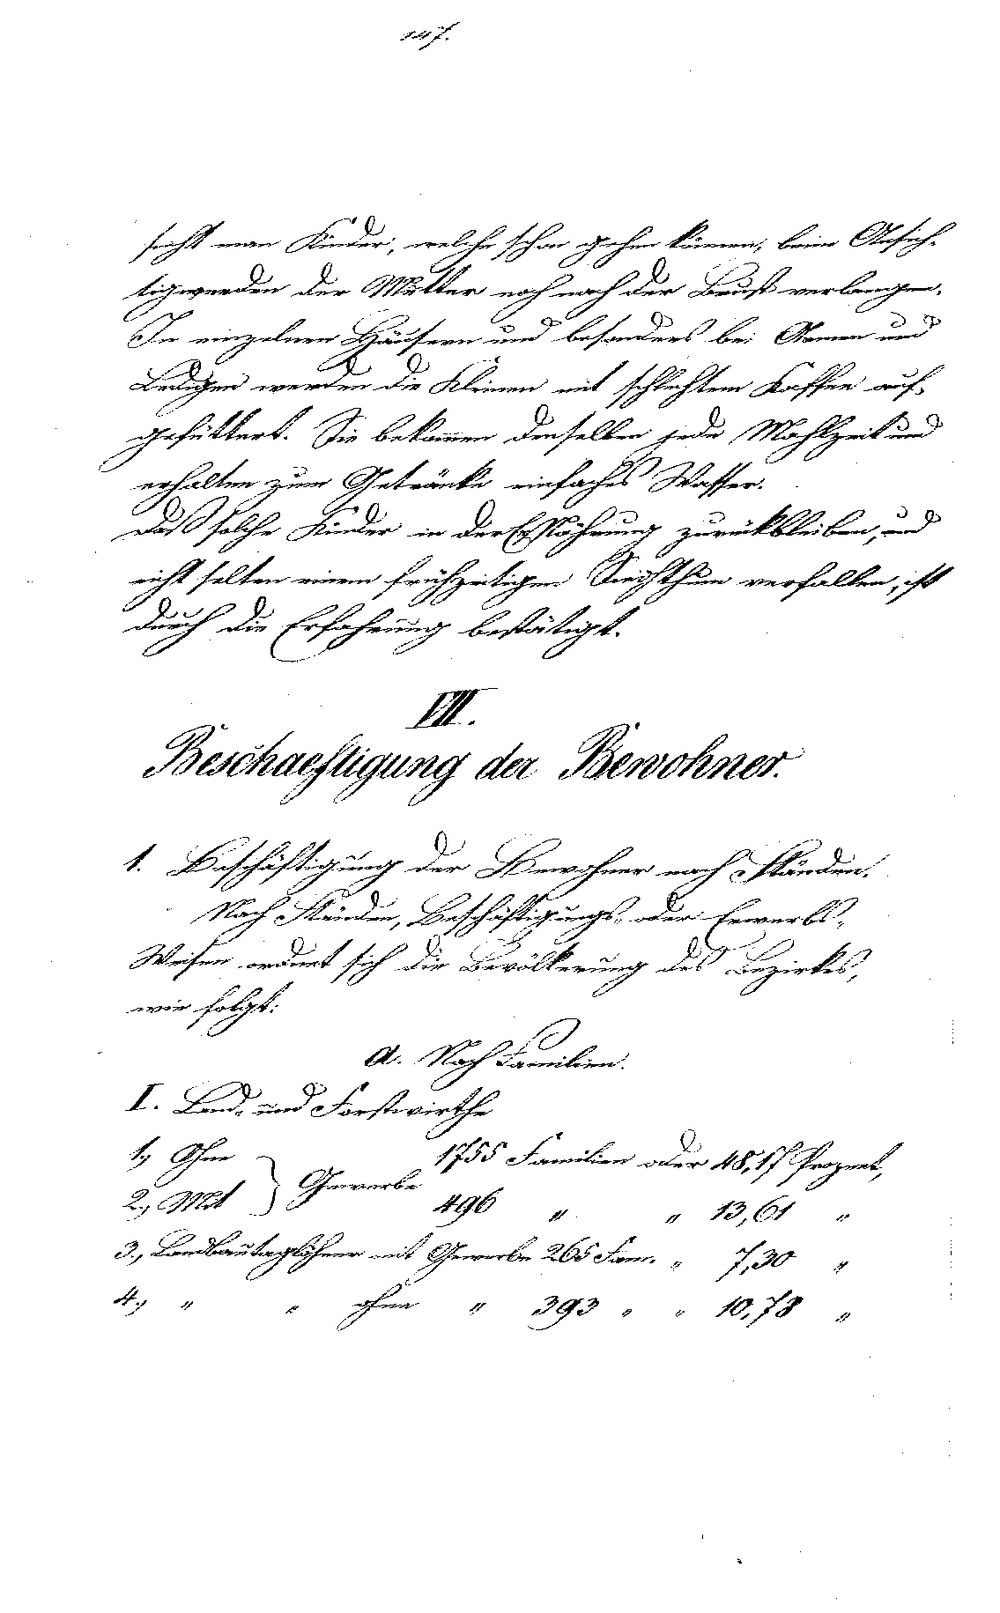 147.
sieht man Kinder, welche schon gehen können, beim Ansich-
tigwerden der Mutter noch nach der Brust verlangen.
In einzelnen Häusern und besonders bei Armen und
Ledigen werden die Kleinen mit schlechtem Kaffee auf-
gefüttert. Sie bekommen denselben jede Mahlzeit und
erhalten zum Getränke einfaches Wasser.
Daß solche Kinder in der Ernährung zurückbleiben, und
nicht selten einem frühzeitigen Siechthum verfallen, ist
durch die Erfahrung bestätigt.
VII.
Beschaeftigung der Bewohner.
1. Beschäftigung der Bewohner nach Ständen.
Nach Ständen, Beschäftigungs- oder Erwerbs-
Weisen ordnet sich die Bevölkerung des Bezirkes,
wie folgt:
A. Nach Familien.
I. Land- und Forstwirthe
1., Ohne 1755 Familien oder 48,17 Prozent,
Gewerbe
2., Mit 496 " " 13,61 "
3., Landbautaglöhner mit Gewerbe 265 Fam. " 7,30 "
4., " " ohne " 393 " " 10,78 "